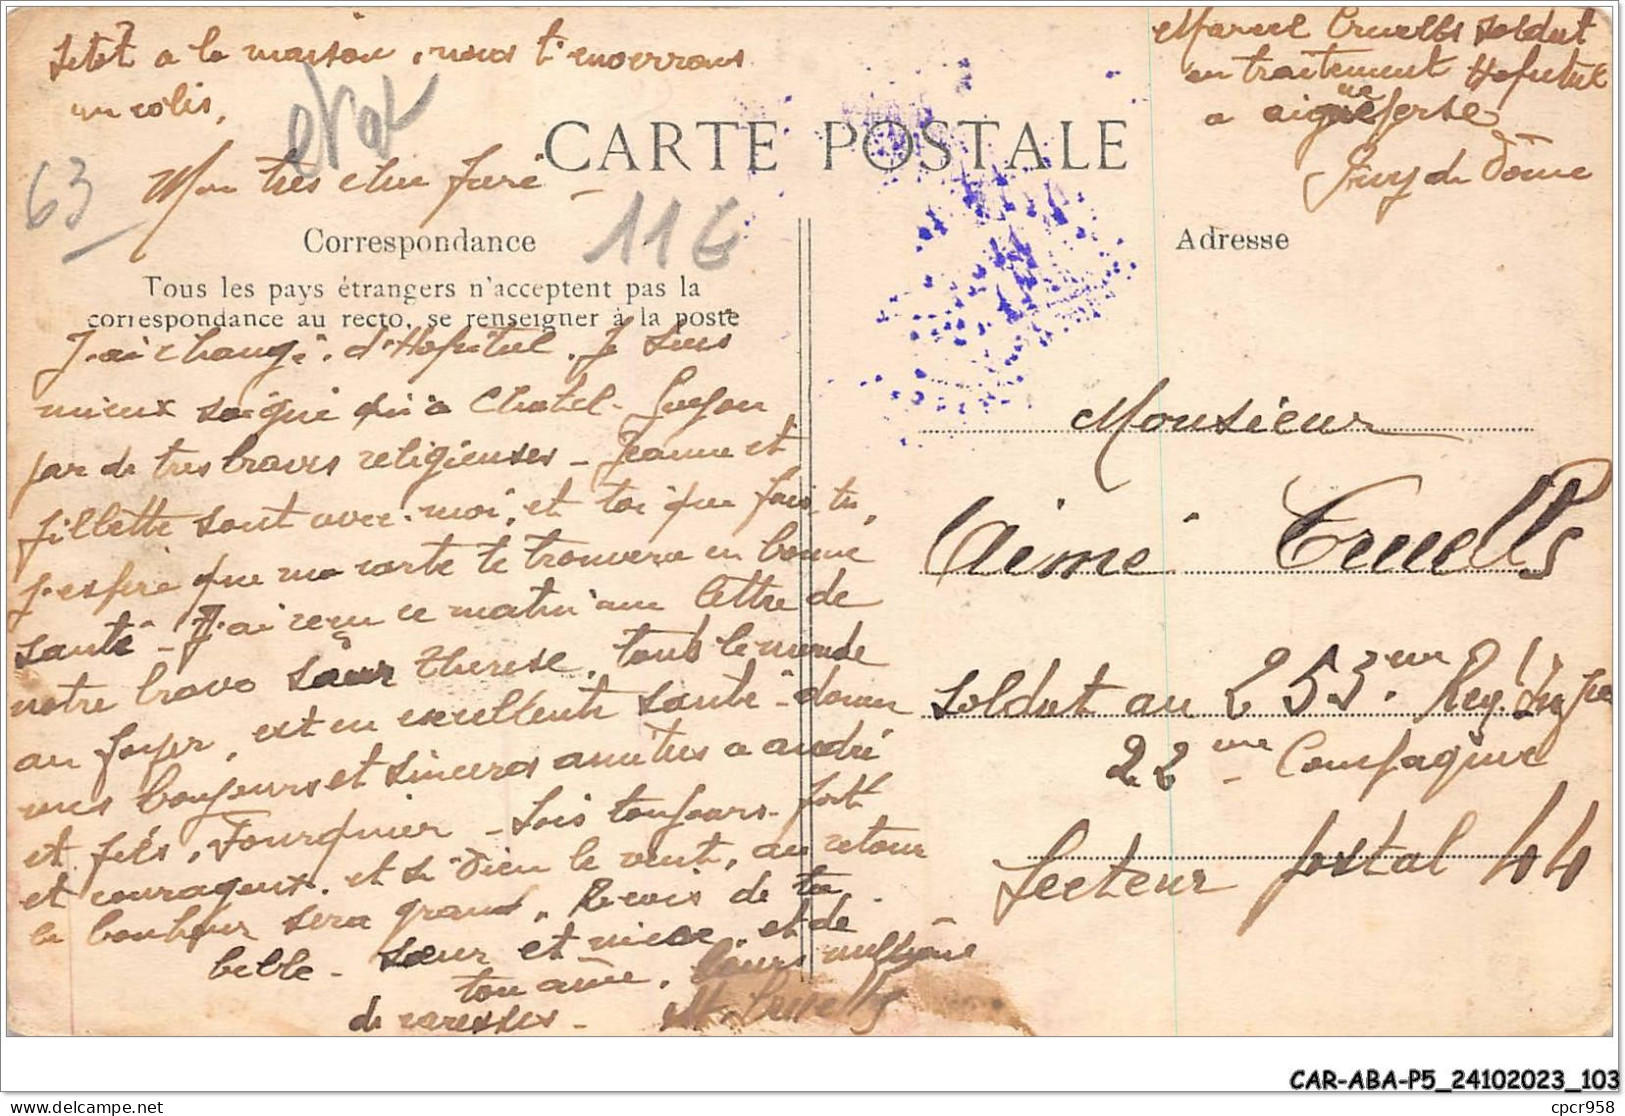 a la maison, nous t'enverrons
un colis,
Marcel Cruells soldat
en traitement Hopital
a aigueperse
Puy de Dôme
CARTE POSTALE
63
Mon très cher frère
11€
Correspondance
Adresse
Tous les pays étrangers n'acceptent pas la
correspondance au recto, se renseigner à la poste
J'ai changé d'Hopital. Je suis
mieux soigné qu'a Chatel-Guyon
par de tres braves religieuses - Jeanne et
fillette sont avec moi, et toi que fais tu,
j'espère que ma carte te trouvera en bonne
santé - J'ai recu ce matin une lettre de
notre brave sœur Therese, tout le monde
au foyer, est en excellente santé - donne
mes bonjours et sinceres amities a andré
et fils, Fourquier - Sois toujours fort
et courageux, et si Dieu le veut, au retour
le bonheur sera grand. Recois de ta
belle-sœur et niece, et de
ton aimé, leurs
de caresses -
M. Cruells
Monsieur
Aimé Cruells
Soldat au 253.me Reg. d'Infie
22me Compagnie
Secteur postal 44
CAR-ABA-P5_24102023_103
delcampe.net
cpcr958